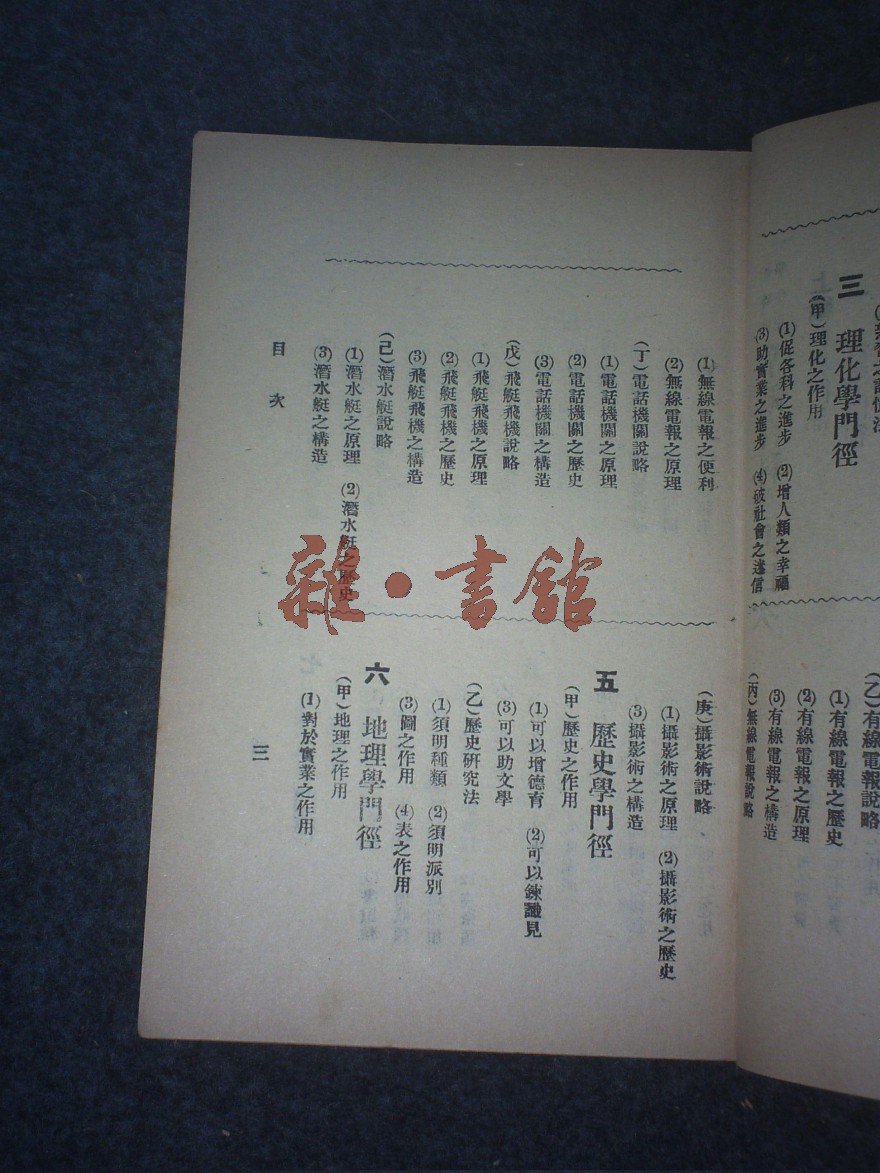 三 理化學門徑
(甲)理化之作用
(1)促各科之進步 (2)增人類之幸福
(3)助實業之進步 (4)破社會之迷信
(乙)有線電報說略
(1)有線電報之歷史
(2)有線電報之原理
(3)有線電報之構造
(丙)無線電報說略
(1)無線電報之便利
(2)無線電報之原理
(丁)電話機關說略
(1)電話機關之原理
(2)電話機關之歷史
(3)電話機關之構造
(戊)飛艇飛機說略
(1)飛艇飛機之原理
(2)飛艇飛機之歷史
(3)飛艇飛機之構造
(己)潛水艇說略
(1)潛水艇之原理 (2)潛水艇之歷史
(3)潛水艇之構造
(庚)攝影術說略
(1)攝影術之原理 (2)攝影術之歷史
(3)攝影術之構造
五 歷史學門徑
(甲)歷史之作用
(1)可以增德育 (2)可以鍊識見
(3)可以助文學
(乙)歷史研究法
(1)須明種類 (2)須明派別
(3)圖之作用 (4)表之作用
六 地理學門徑
(甲)地理之作用
(1)對於實業之作用
目次
三
雜·書館